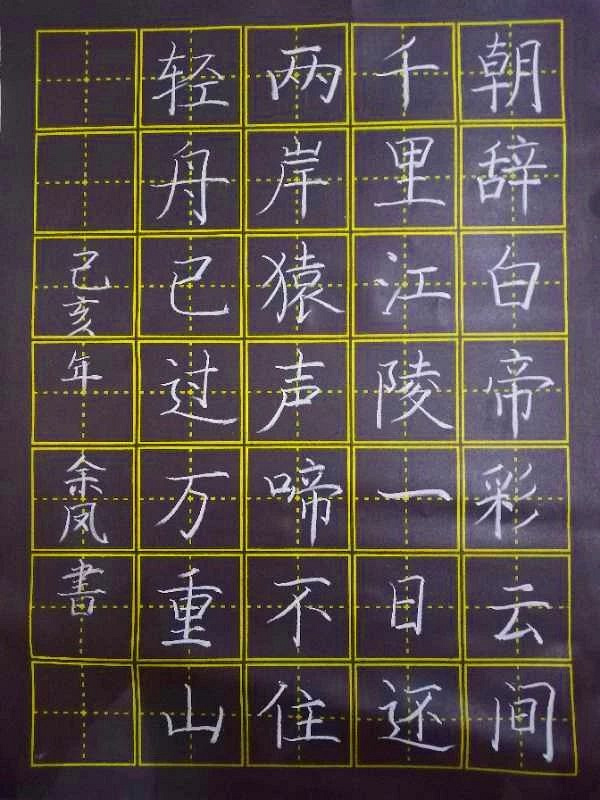 朝辞白帝彩云间
千里江陵一日还
两岸猿声啼不住
轻舟已过万重山
己亥年余凤書